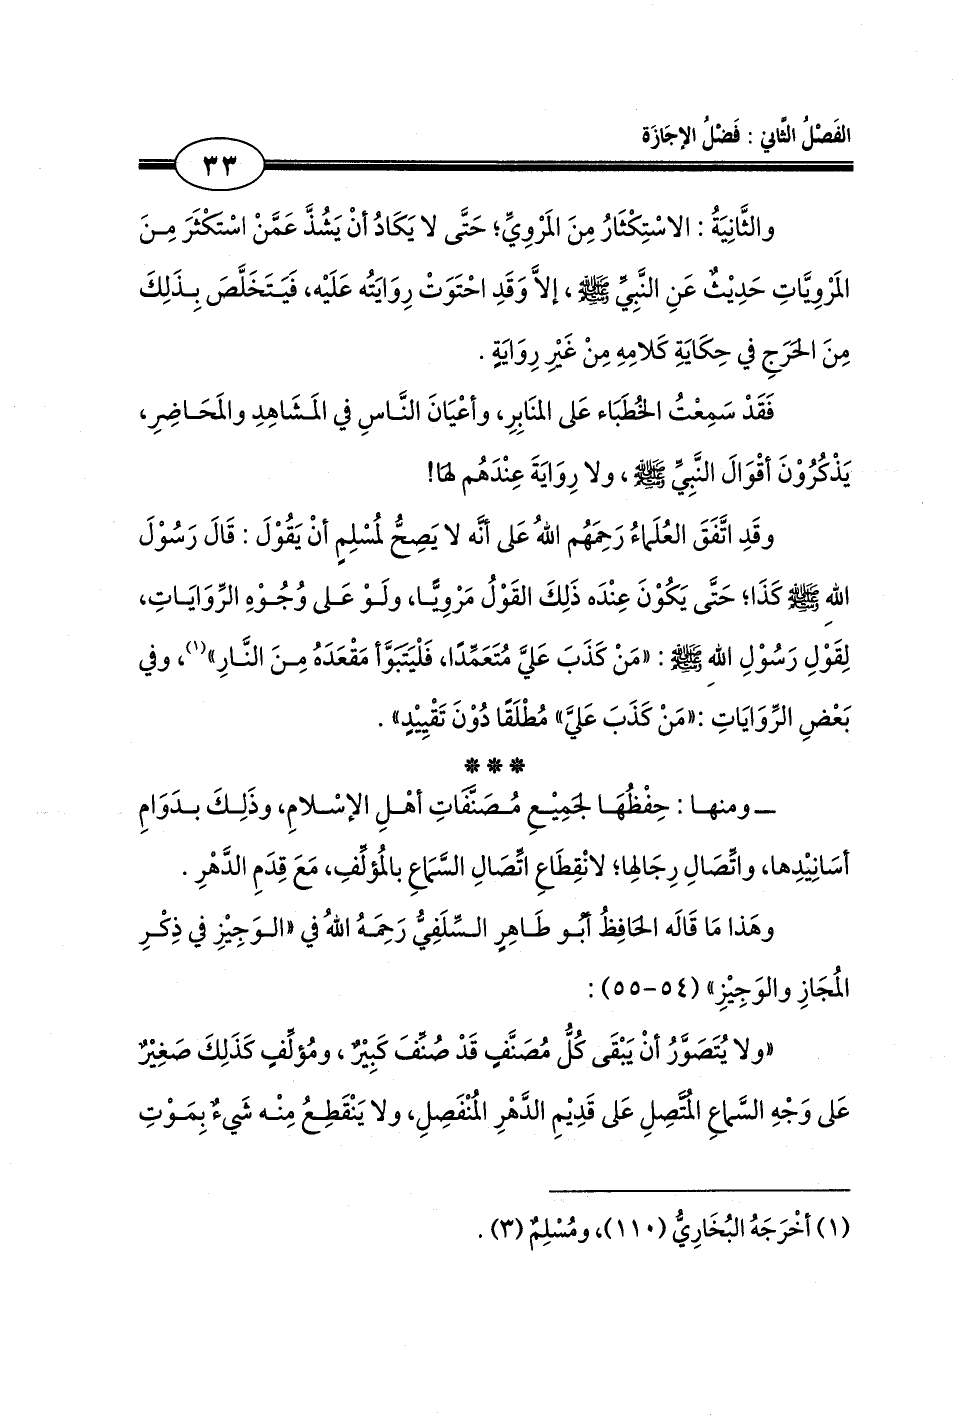 الفَصْلُ الثَّاني : فَضْلُ الإجَازَة
٣٣
والثَّانِيَةُ : الاسْتِكْثَارُ مِنَ المَرْوِيِّ؛ حَتَّى لا يَكَادُ أنْ يَشُذَّ عَمَّنْ اسْتَكْثَرَ مِـنَ
المَرْوِيَّاتِ حَدِيْثٌ عَنِ النَّبِيِّ ﷺ ، إلاَّ وَقَدِ احْتَوَتْ رِوَايَتُه عَلَيْه، فَيَـتَخَلَّصَ بِـذَلِكَ
مِنَ الحَرَجِ في حِكَايَةِ كَلامِهِ مِنْ غَيْرِ رِوَايَةٍ .
فَقَدْ سَمِعْتُ الخُطَبَاء عَلى المَنابِرِ، وأعْيَانَ النَّـاسِ في المَـشَاهِدِ والمَحَـاضِرِ،
يَذْكُرُوْنَ أقْوَالَ النَّبِيِّ ﷺ ، ولا رِوَايَةَ عِنْدَهُم لهَا!
وقَدِ اتَّفَقَ العُلَماءُ رَحِمَهُم اللهُ عَلى أنَّه لا يَصِحُّ لمُسْلِمٍ أنْ يَقُوْلَ : قَالَ رَسُوْلَ
اللهِ ﷺ كَذَا؛ حَتَّى يَكُوْنَ عِنْدَه ذَلِكَ القَوْلُ مَرْوِيًّـا، ولَـوْ عَـلى وُجُـوْهِ الرِّوَايَـاتِ،
لِقَوْلِ رَسُوْلِ اللهِ ﷺ : «مَنْ كَذَبَ عَليَّ مُتَعَمِّدًا، فَلْيَتَبَوَّأ مَقْعَدَهُ مِـنَ النَّـارِ»(١)، وفي
بَعْضِ الرِّوَايَاتِ :«مَنْ كَذَبَ عَليَّ» مُطْلَقًا دُوْنَ تَقْيِيْدٍ» .
* * *
ـ ومنهـا : حِفْظُهَـا لجَمِيْـعِ مُـصَنَّفَاتِ أهْـلِ الإسْـلامِ، وذَلِـكَ بـدَوَامِ
أسَانِيْدِها، واتِّصَالِ رِجَالِها؛ لانْقِطَاعِ اتِّصَالِ السَّماعِ بالمُؤلِّفِ، مَعَ قِدَمِ الدَّهْرِ .
وهَذا مَا قَالَه الحَافِظُ أبُـو طَـاهِرٍ الـسِّلَفِيُّ رَحِمَـهُ اللهُ في «الـوَجِيْزِ في ذِكْـرِ
المُجَازِ والوَجِيْزِ» (٥٤-٥٥) :
«ولا يُتَصَوَّرُ أنْ يَبْقَى كُلُّ مُصَنَّفٍ قَدْ صُنِّفَ كَبِيْرٌ ، ومُؤلِّفٍ كَذَلِكَ صَغِيْرٌ
عَلى وَجْهِ السَّماعِ المُتَّصِلِ عَلى قَدِيْمِ الدَّهْرِ المُنْفَصِلِ، ولا يَنْقَطِـعُ مِنْـه شَيءٌ بِمَـوْتِ
(١) أخْرَجَهُ البُخَارِيُّ (١١٠)، ومُسْلِمٌ (٣) .